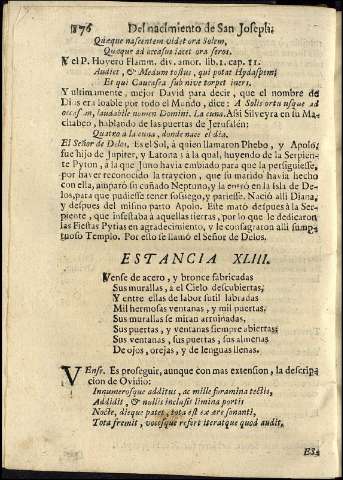 176 Del nacimiento de San Joseph.
Quæque nascentem videt ora Solem,
Quæque ad occasus iacet ora seros.
Y el P. Huyero Flamm. div. amor. lib. 1. cap. 11.
Audiet, & Medum tostus, qui potat Hydaspim;
Et qui Caucasea sub nive torpet iners.
Y ultimamente, mejor David para decir, que el nombre de
Dios era loable por todo el Mundo, dice: A Solis ortu usque ad
occasum, laudabile nomen Domini. La cuna. Assi Silveyra en su Ma-
chabeo, hablando de las puertas de Jerusalèn:
Quatro à la cuna, donde nace el dia.
El Señor de Delos. Es el Sol, à quien llamaron Phebo, y Apolo;
fue hijo de Jupiter, y Latona: à la qual, huyendo de la Serpien-
te Pyton, à la que Juno havia embiado para que la persiguiesse,
por haver reconocido la traycion, que su marido havia hecho
con ella, amparò su cuñado Neptuno, y la entrò en la Isla de De-
los, para que pudiesse tener sosiego, y pariesse. Naciò alli Diana,
y despues del mismo parto Apolo. Este matò despues à la Ser-
piente, que infestaba à aquellas tierras, por lo que le dedicaron
las Fiestas Pytias en agradecimiento, y le consagraron alli sump-
tuoso Templo. Por esto se llamò el Señor de Delos.
ESTANCIA XLIII.
Vense de acero, y bronce fabricadas
Sus murallas, à el Cielo descubiertas;
Y entre ellas de labor sutil labradas
Mil hermosas ventanas, y mil puertas.
Sus murallas se miran arruinadas,
Sus puertas, y ventanas siempre abiertas;
Sus ventanas, sus puertas, sus almenas
De ojos, orejas, y de lenguas llenas.
VEnse. Es proseguir, aunque con mas extension, la descrip-
cion de Ovidio:
Innumerosque additus, ac mille foramina tectis,
Addidit, & nullis inclusit limina portis
Nocte, dieque patet, tota est ex ære sonanti,
Tota fremit, vocesque refert iteratque quod audit.
ES-